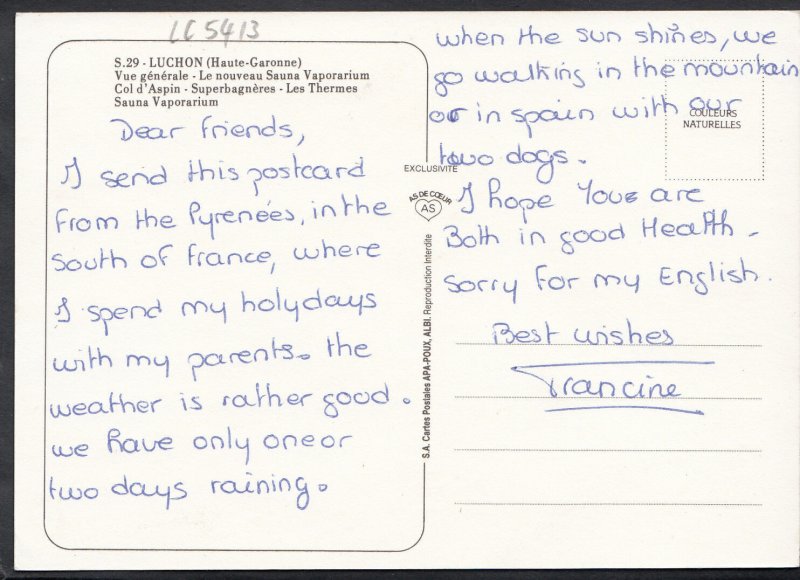 LC 5413
S.29 - LUCHON (Haute-Garonne)
Vue générale - Le nouveau Sauna Vaporarium
Col d'Aspin - Superbagnères - Les Thermes
Sauna Vaporarium
Dear friends,
I send this postcard
from the Pyrenées, in the
South of France, where
I spend my holydays
with my parents. the
weather is rather good.
we have only one or
two days raining.
when the sun shines, we
go walking in the mountain
or in spain with our
two dogs.
I hope Youe are
Both in good Health.
Sorry for my English.
Best wishes
Francine
COULEURS
NATURELLES
EXCLUSIVITÉ
AS DE CŒUR
AS
S.A. Cartes Postales APA-POUX, ALBI. Reproduction Interdite